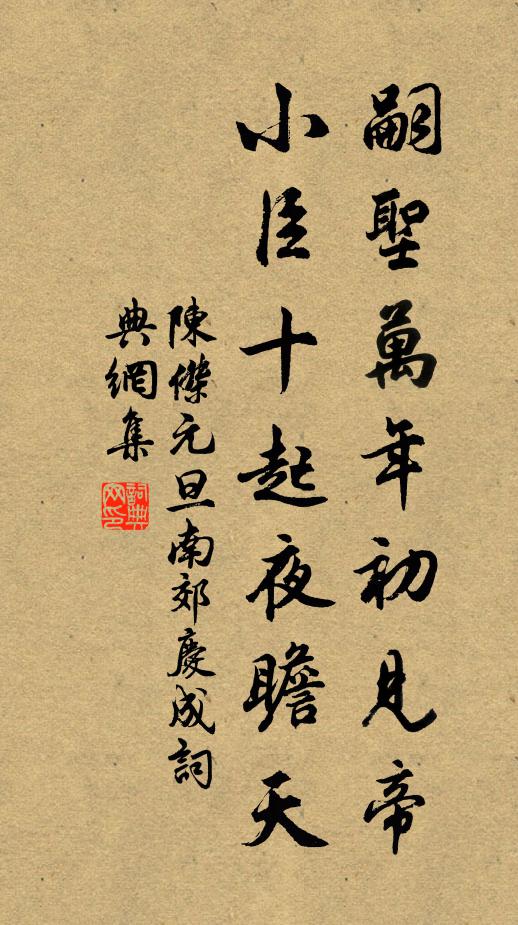 嗣聖萬年初見帝
小臣十起夜瞻天
陳傑元旦南郊慶成詞
典網集
詞典网印